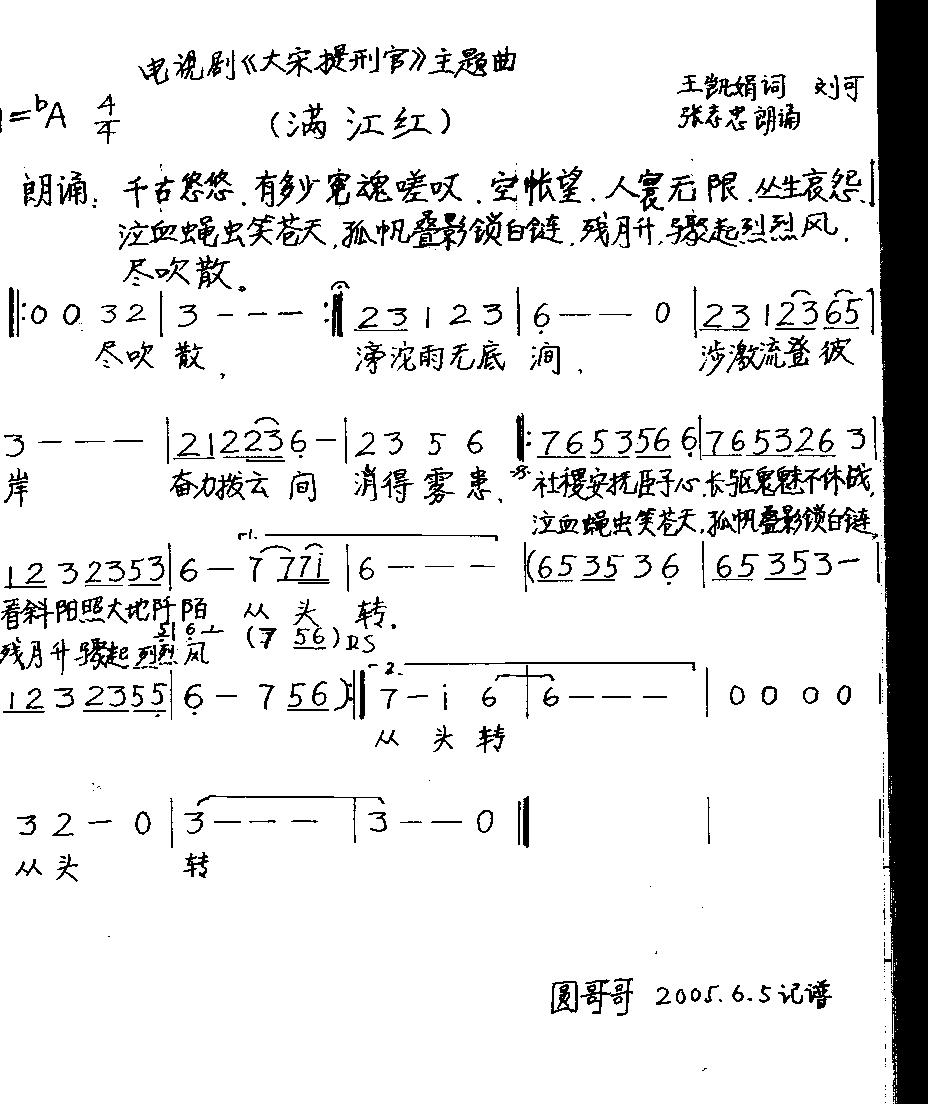 电视剧《大宋提刑官》主题曲
王凯娟词 刘可
1=ᵇA 4/4
(满江红)
张存忠朗诵
朗诵: 千古悠悠,有多少冤魂嗟叹,空怅望,人寰无限,丛生哀怨,
泣血蝇虫笑苍天,孤帆叠影锁白链,残月升,骤起烈烈风,
尽吹散。
‖: 0 0 3 2 | 3 - - - :‖ 2 3 1 2 3 | 6 - - 0 | 2 3 1 2 3 6 5 |
尽吹 散, 滂沱雨无底 涧, 涉激流登彼
3 - - - | 2 1 2 2 3 6 - | 2 3 5 6 ‖: 7 6 5 3 5 6 6 | 7 6 5 3 2 6 3 |
岸 奋力拨云 间 消得雾患, 社稷安抚臣子心,长驱鬼魅不休战,
泣血蝇虫笑苍天,孤帆叠影锁白链,
1.
1 2 3 2 3 5 3 | 6 - 7 7 7 i | 6 - - - | (6 5 3 5 3 6 | 6 5 3 5 3 - |
看斜阳照大地阡陌 从 头 转。
5 6 - (7 5 6)
残月升骤起烈烈风
2.
1 2 3 2 3 5 5 | 6 - 7 5 6) :‖ 7 - i 6 | 6 - - - | 0 0 0 0 |
从 头 转
3 2 - 0 | 3 - - - | 3 - - 0 ‖
从头 转
圆哥哥 2005.6.5记谱